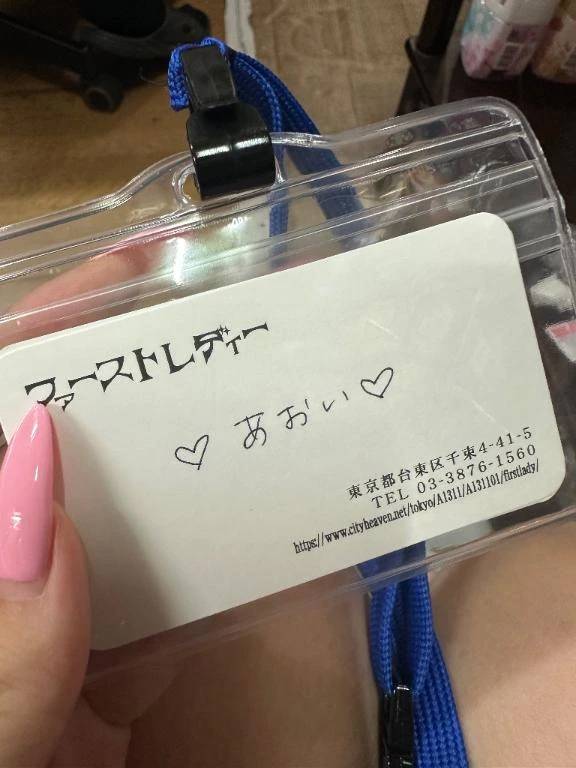 ファーストレディー
♡ あおい ♡
東京都台東区千束4-41-5
TEL 03-3876-1560
https://www.cityheaven.net/tokyo/A1311/A131101/firstlady/